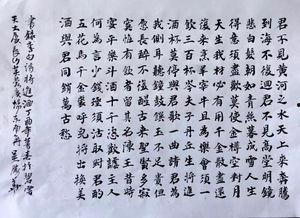 君不見黃河之水天上來奔流
到海不復迴君不見高堂明鏡
悲白髮朝如青絲暮成雪人生
得意須盡歡莫使金樽空對月
天生我材必有用千金散盡還
復來烹羊宰牛且為樂會須一
飲三百杯岑夫子丹丘生將進
酒杯莫停與君歌一曲請君為
我側耳聽鐘鼓饌玉不足貴但
願長醉不復醒古來聖賢皆寂
寞惟有飲者留其名陳王昔時
宴平樂斗酒十千恣歡謔主人
何為言少錢徑須沽取對君酌
五花馬千金裘呼兒將出換美
酒與君同銷萬古愁
書錄李白詩將進酒一曲